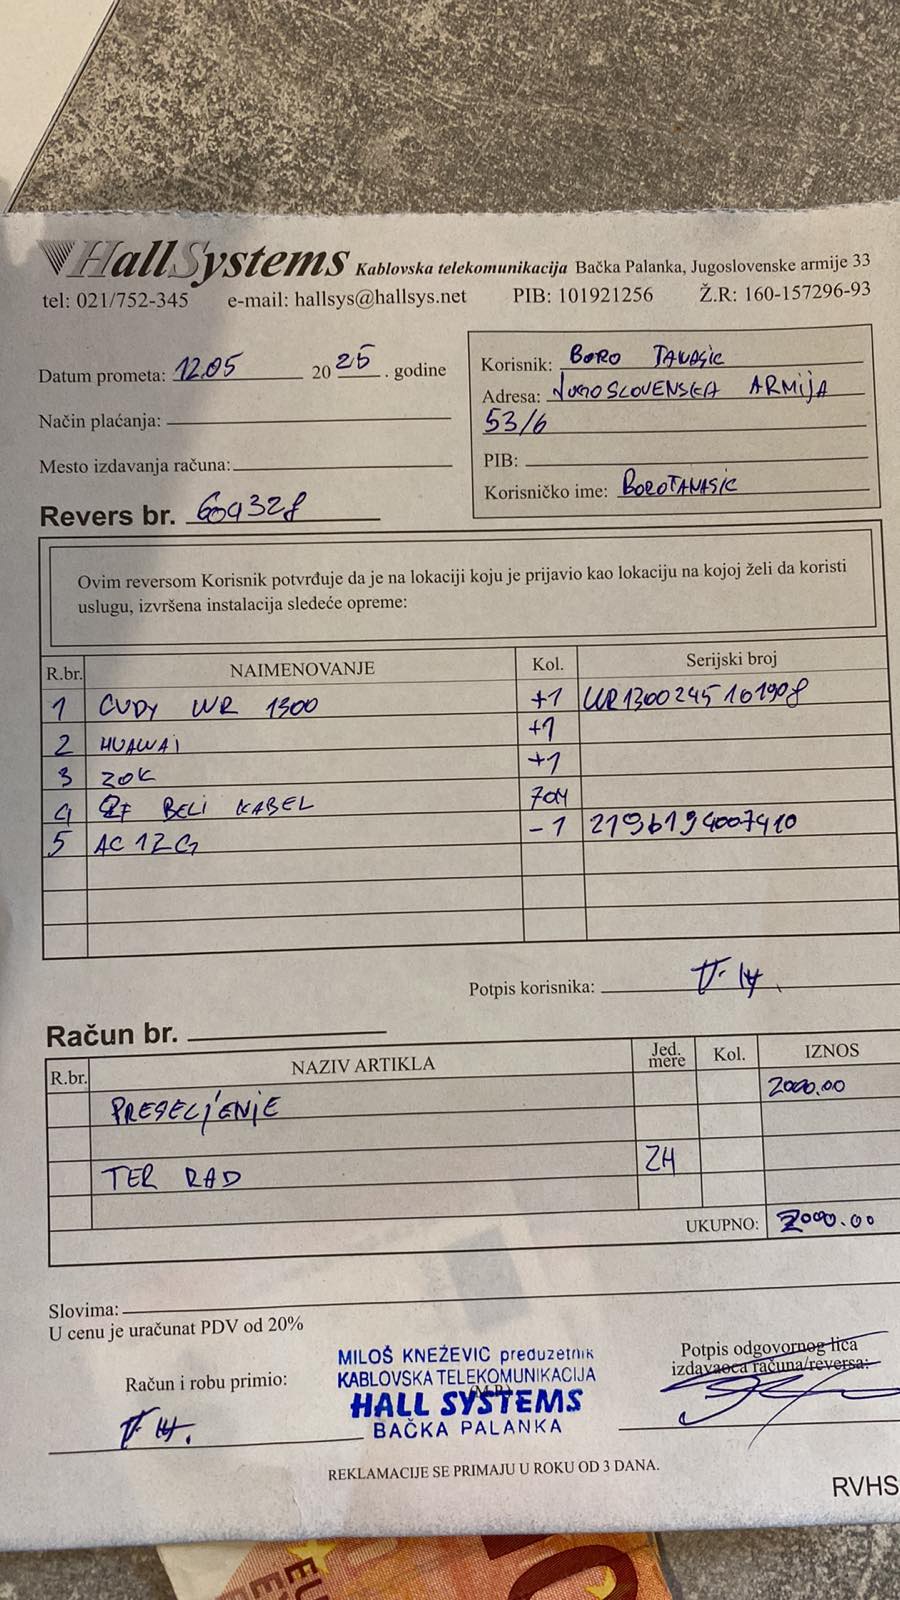 HallSystems Kablovska telekomunikacija Bačka Palanka, Jugoslovenske armije 33
tel: 021/752-345 e-mail: hallsys@hallsys.net PIB: 101921256 Ž.R: 160-157296-93
Datum prometa: 12.05 2025. godine
Način plaćanja:
Mesto izdavanja računa:
Revers br. 609328
Korisnik: BORO TANASIC
Adresa: JUGOSLOVENSKA ARMIJA
53/6
PIB:
Korisničko ime: BOROTANASIC
Ovim reversom Korisnik potvrđuje da je na lokaciji koju je prijavio kao lokaciju na kojoj želi da koristi
uslugu, izvršena instalacija sledeće opreme:
R.br. NAIMENOVANJE Kol. Serijski broj
1 CUDY WR 1300 +1 WR1300245161908
2 HUAWAI +1
3 ZOK +1
4 BELI KABEL 70M
5 AC 12G -1 2196194007410
Potpis korisnika:
Račun br.
R.br. NAZIV ARTIKLA Jed. mere Kol. IZNOS
PRESELJENJE 2000.00
TER RAD 2H
UKUPNO: 2000.00
Slovima:
U cenu je uračunat PDV od 20%
Račun i robu primio:
MILOŠ KNEŽEVIC preduzetnik
KABLOVSKA TELEKOMUNIKACIJA
(M.P.)
HALL SYSTEMS
BAČKA PALANKA
Potpis odgovornog lica
izdavaoca računa/reversa:
REKLAMACIJE SE PRIMAJU U ROKU OD 3 DANA.
RVHS